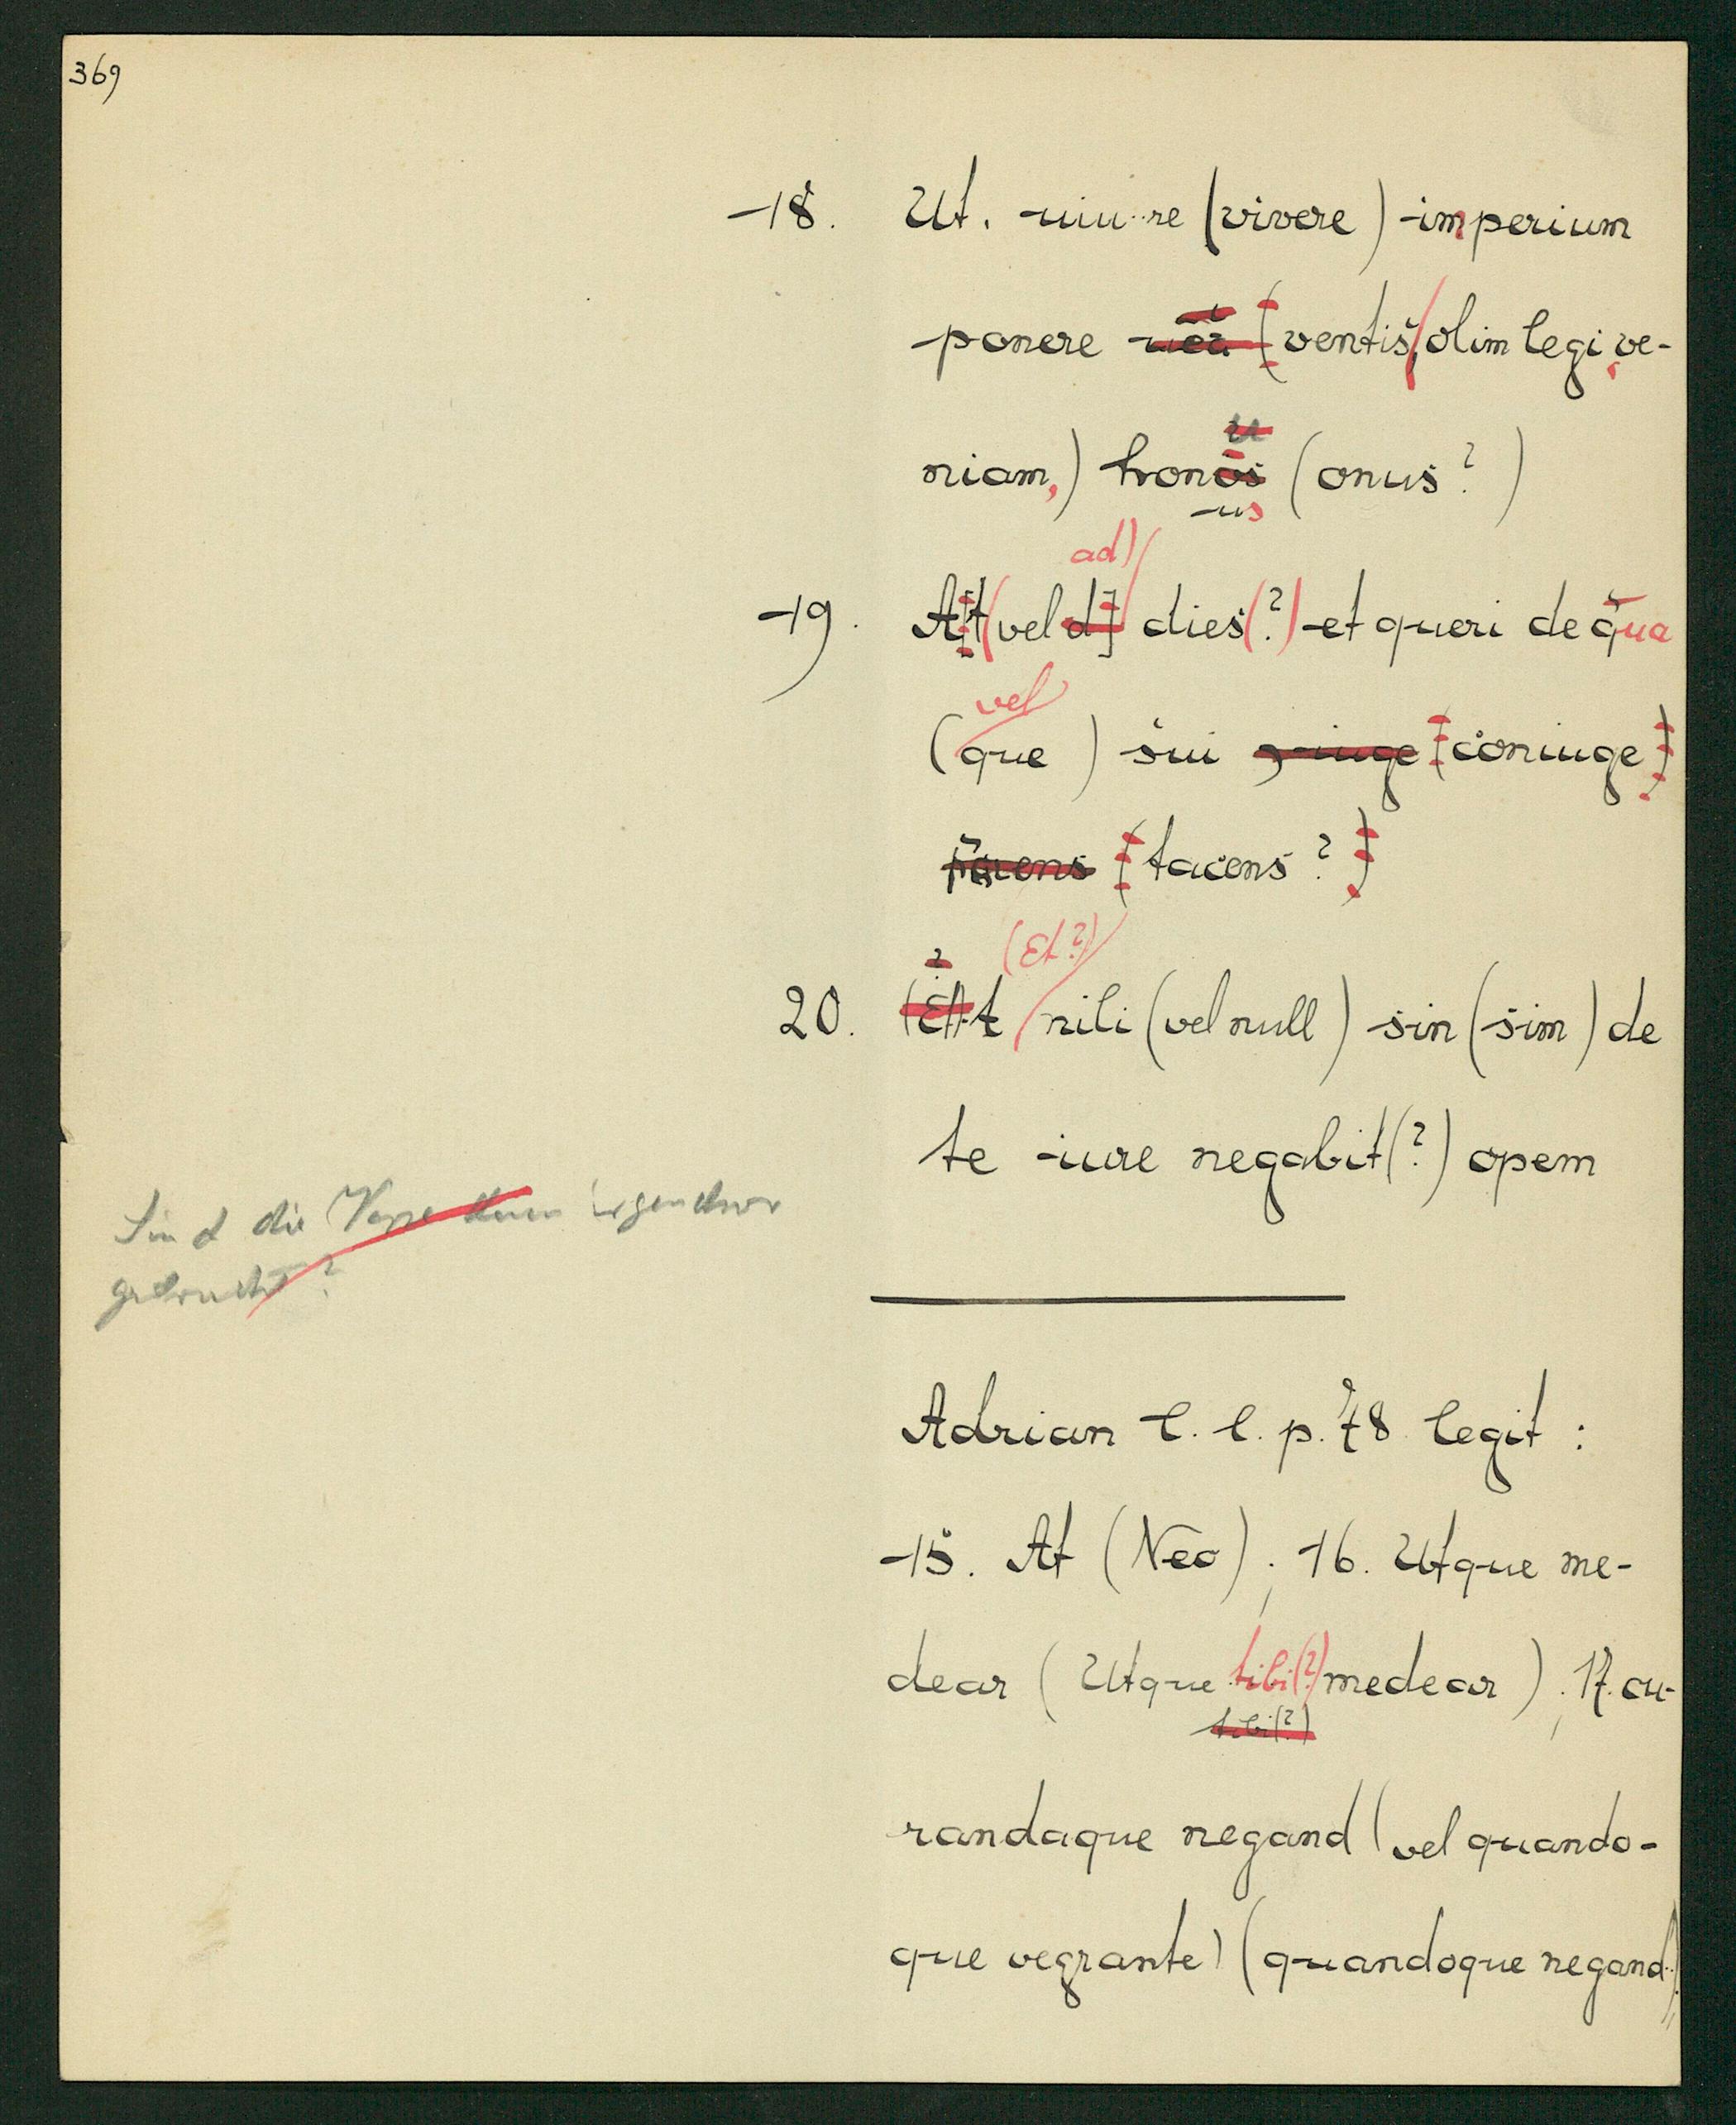 369
18. Ut. uiu..re (vivere) imperium
ponere (ventis, olim legi, ve-
niam,) honus (onus?)
ad)
19. At (vel dies (?) et queri de qua
vel
(que) sui coniuge
tacens?
(Et?)
20. At nili (vel null) sin (sim) de
te iure negabit (?) opem
Sind die irgendwo
gedruckt?
Adrian l. l. p. 78 legit:
15. At (Nec); 16. Utque me-
dear (Utque tibi(?) medear); 17. cu-
tibi(?)
randaque negand (vel quando-
que vegrante) (quandoque negand..)